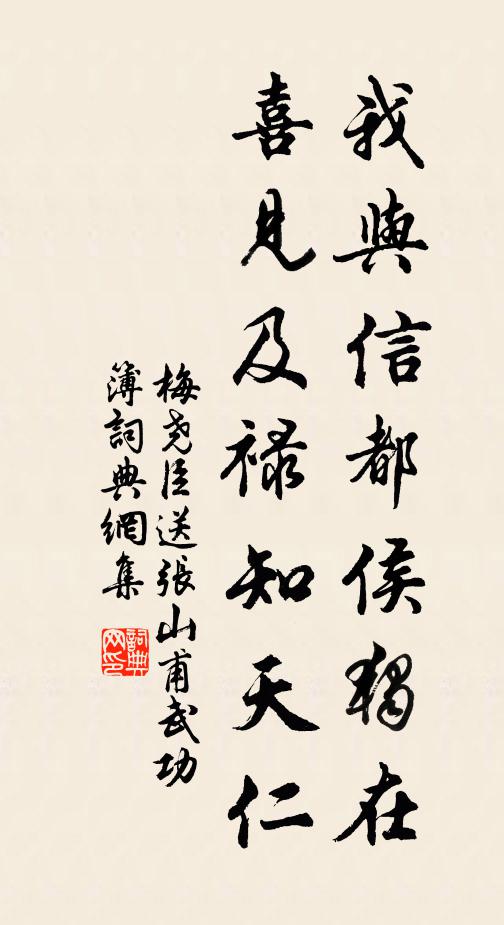 我與信都侯獨在
喜見及祿知天仁
梅堯臣送張山甫武功
簿詞典網集
詞典網印